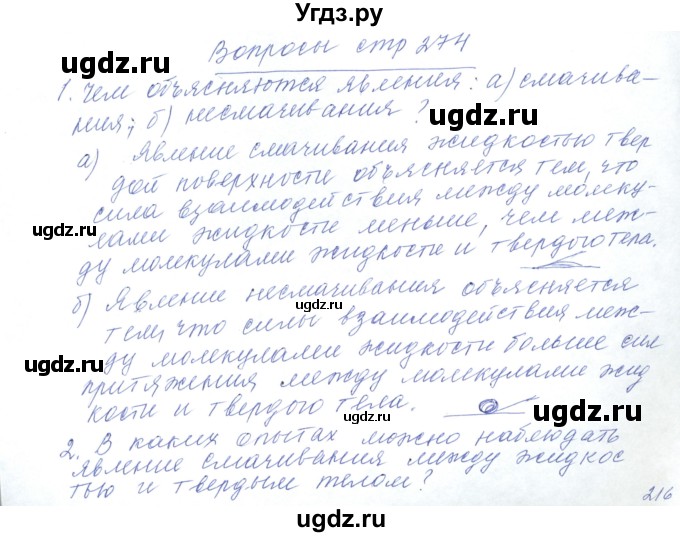 Угдз.ру
Вопросы стр 274
1. Чем объясняются явления: а) смачива-
ния; б) несмачивания?
а) Явление смачивания жидкостью твер
дой поверхности объясняется тем, что
сила взаимодействия между молеку-
лами жидкости меньше, чем меж-
ду молекулами жидкости и твердого тела.
б) Явление несмачивания объясняется
тем, что силы взаимодействия меж-
ду молекулами жидкости больше сил
притяжения между молекулами жид
кости и твердого тела.
2. В каких опытах можно наблюдать
явление смачивания между жидкос
тью и твердым телом?
216
ugdz.ru
ugdz.ru
ugdz.ru
ugdz.ru
ugdz.ru
ugdz.ru
ugdz.ru
ugdz.ru
ugdz.ru
ugdz.ru